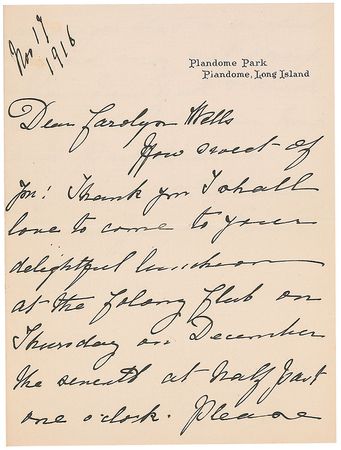 Nov 17
1916
Plandome Park
Plandome, Long Island
Dear Carolyn Wells
How sweet of
you! Thank you I shall
love to come to your
delightful luncheon
at the Colony Club on
Thursday on December
the seventh at half past
one o'clock. Please